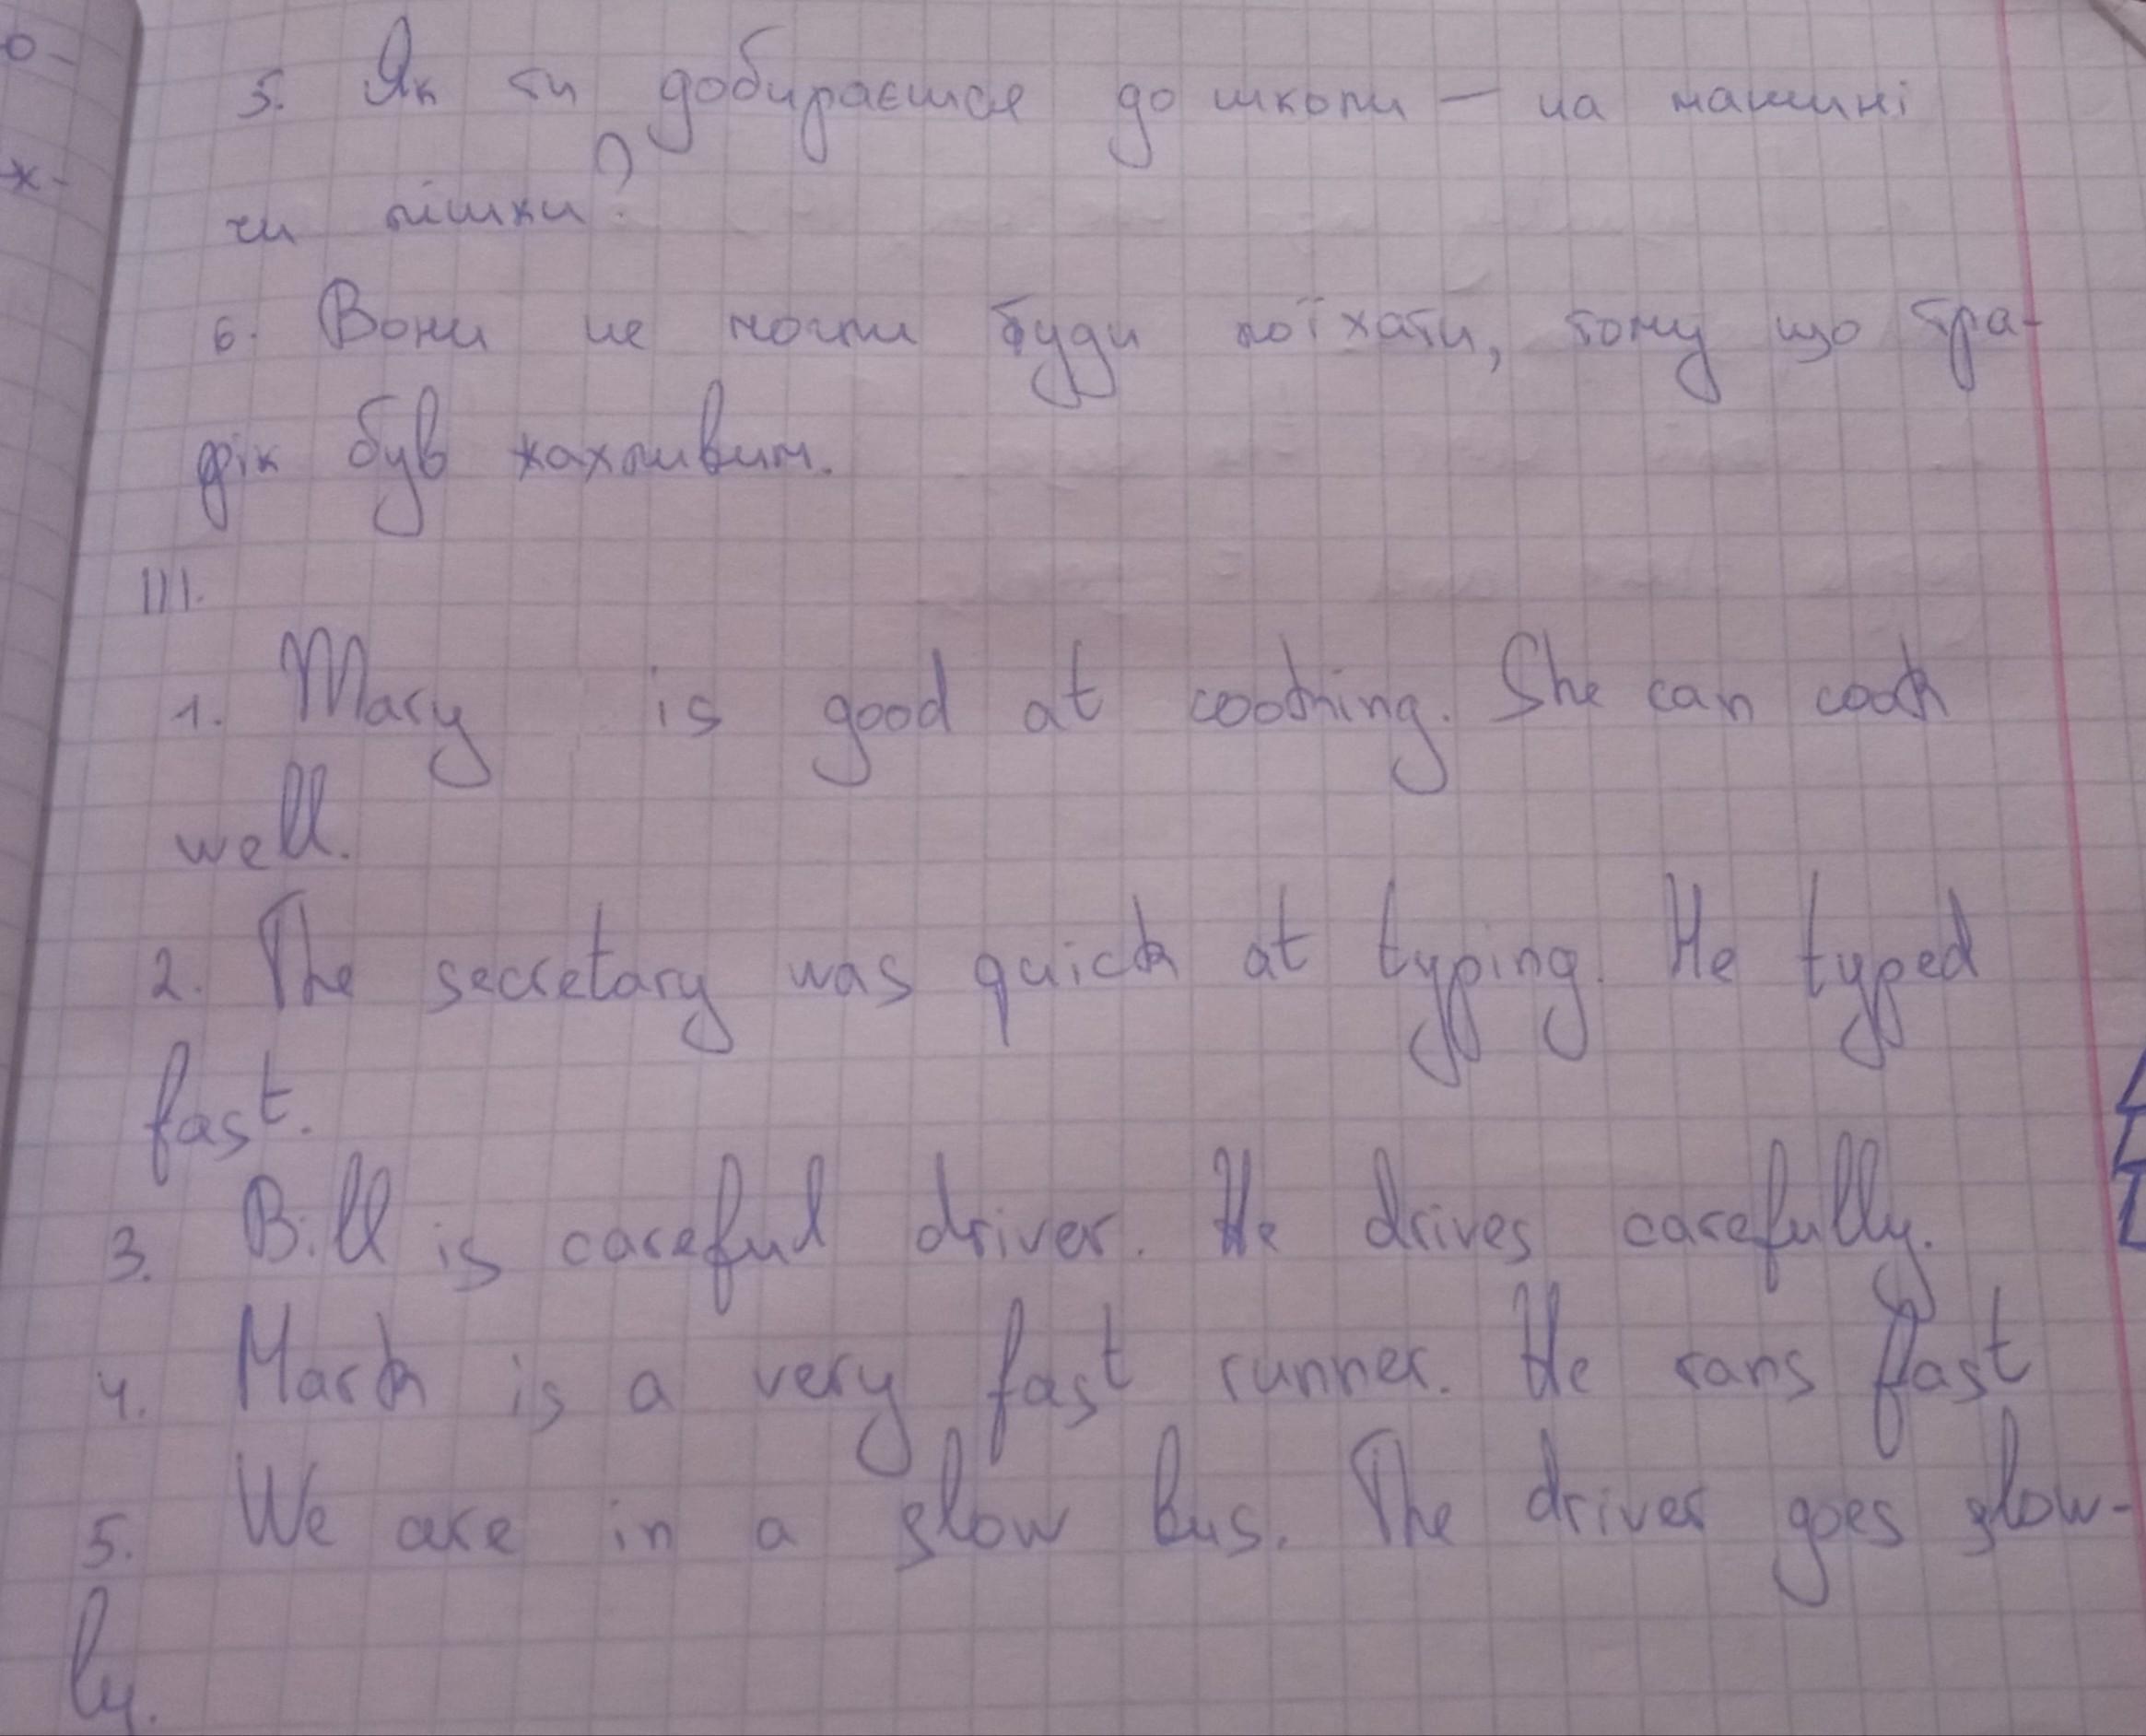 о-
х-
5. Як ти добираєшся до школи — на машині
чи пішки?
6. Вони не могли буди поїхати, тому що тра-
фік був жахливим.
III.
1. Mary is good at cooking. She can cook
well.
2. The secretary was quick at typing. He typed
fast.
3. Bill is careful driver. He drives carefully.
4. Mark is a very fast runner. He rans fast
5. We are in a slow bus. The driver goes slow-
ly.